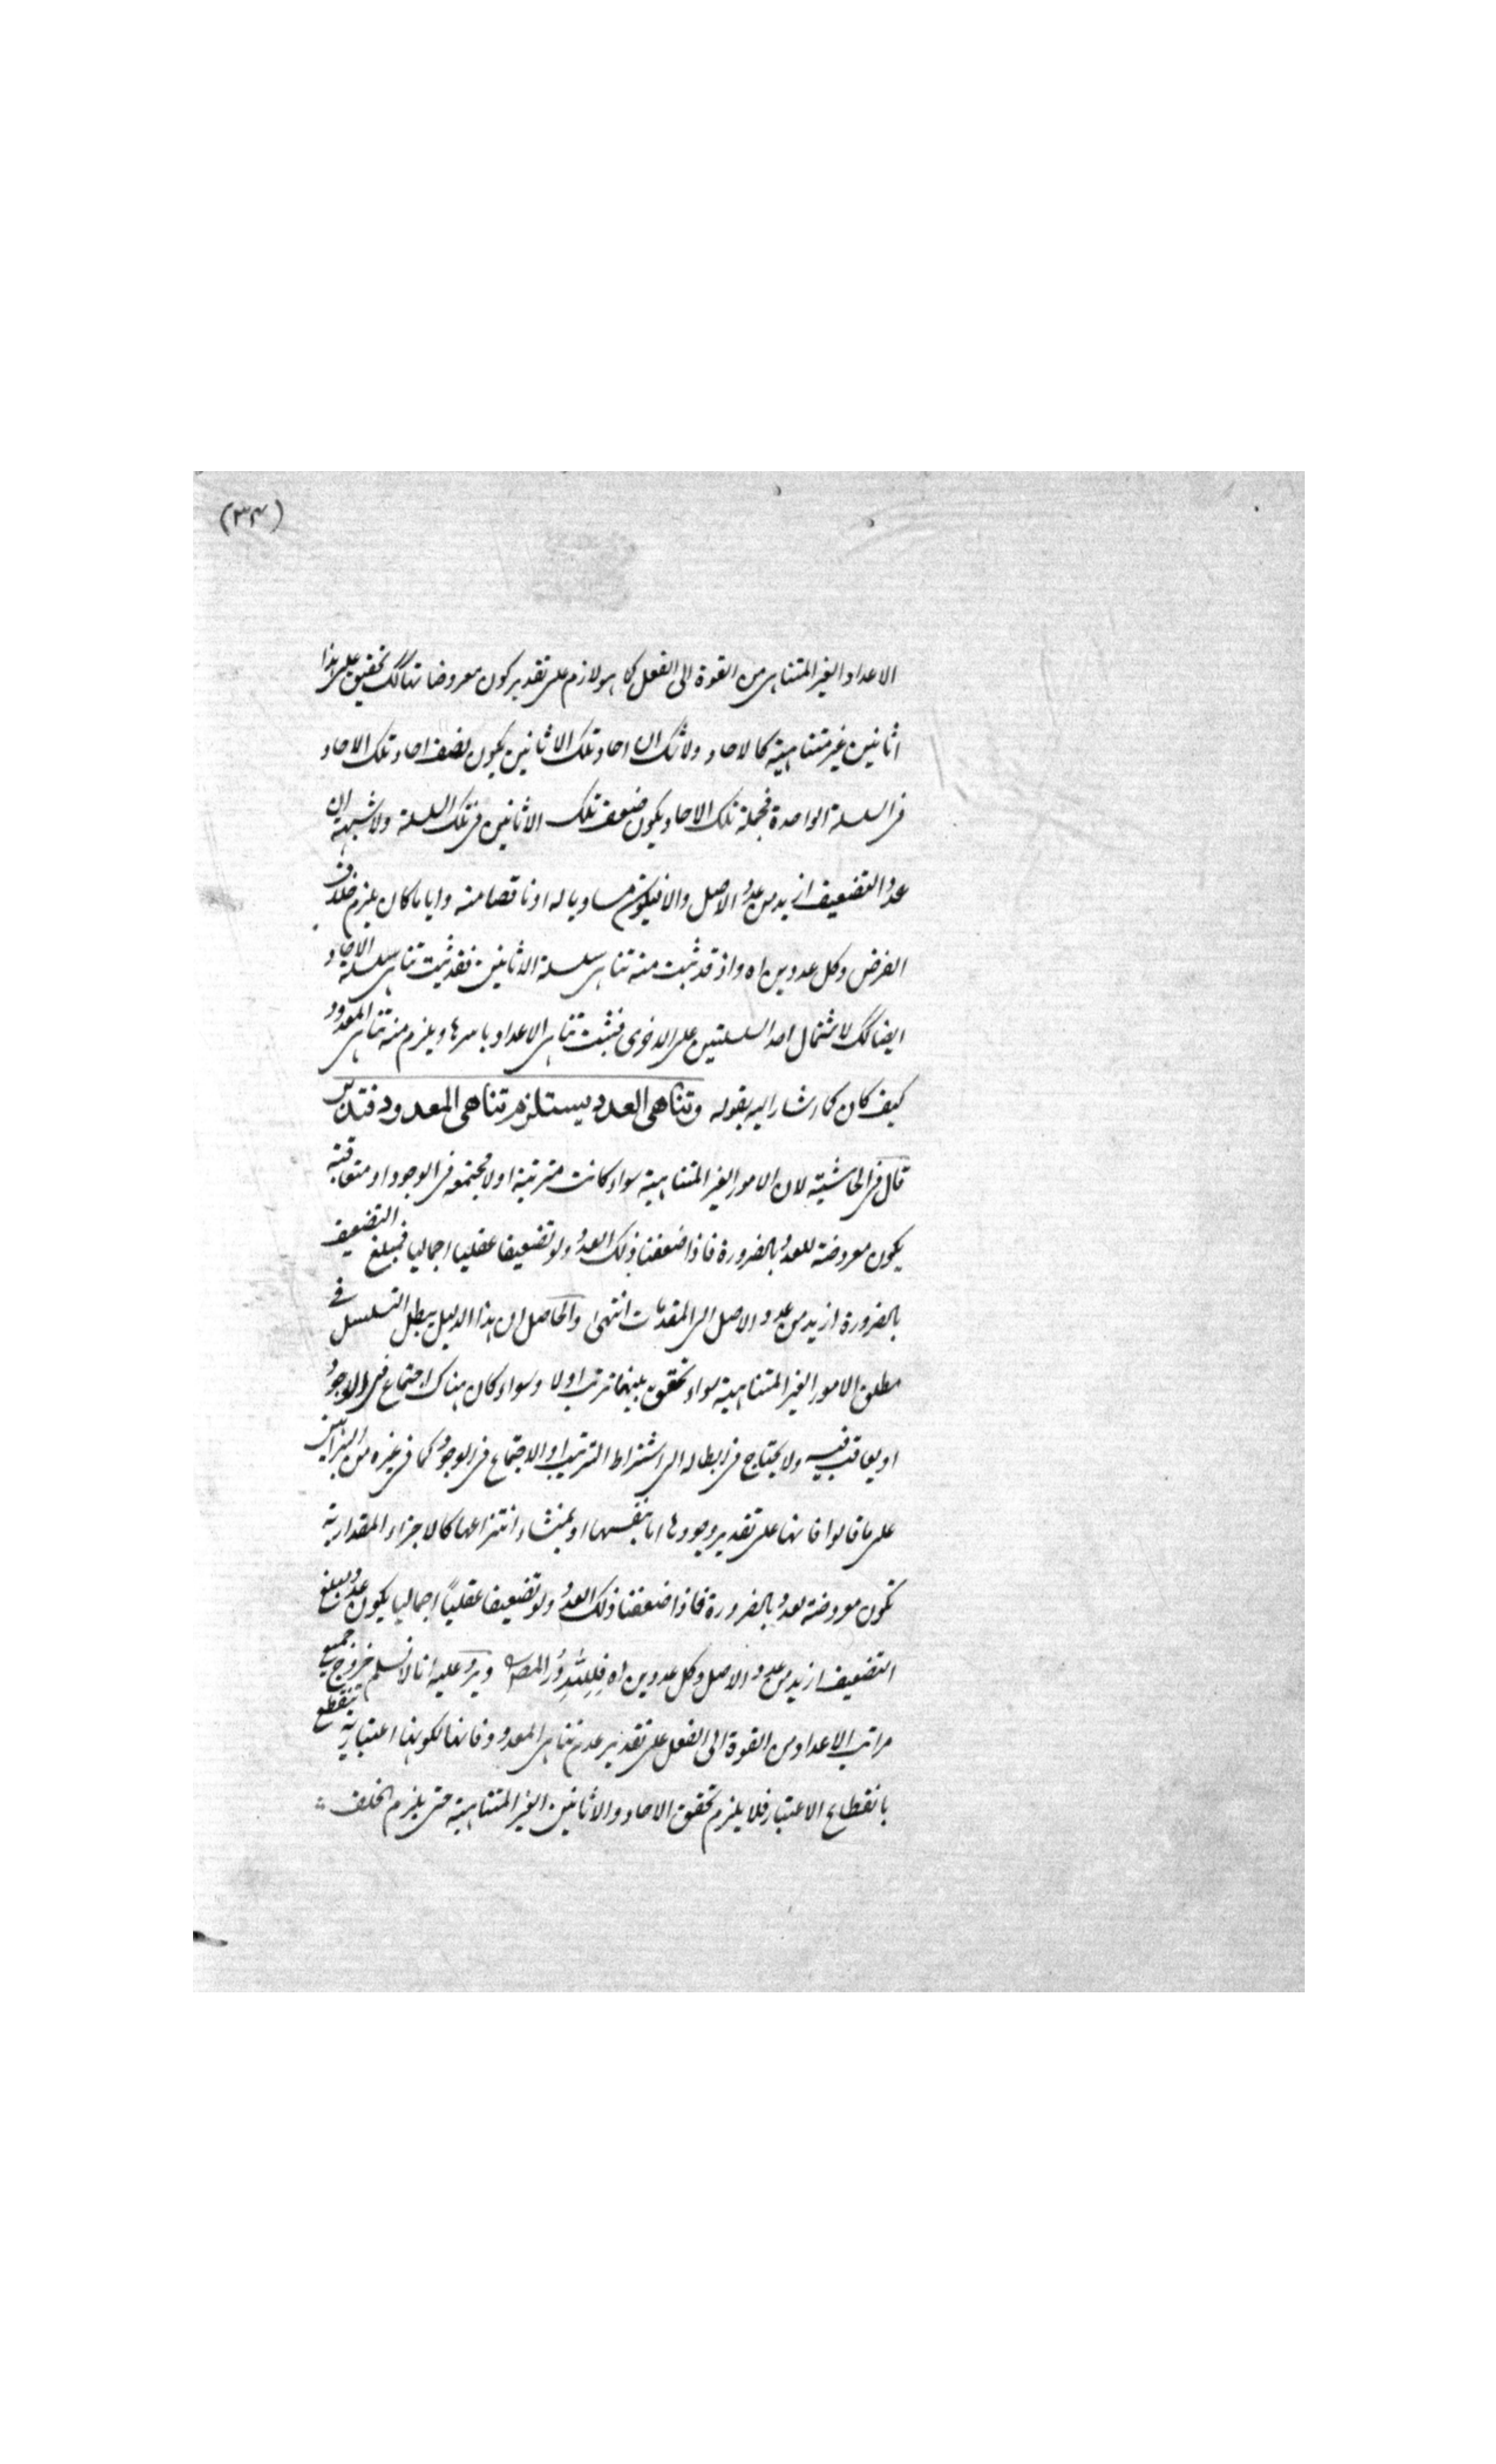 (٣٤)
الاعداد الغير المتناهى من القوة الى الفعل كما هو لازم على تقدير كون معروضاتها كك تحقيق على هذا
اثانين غير متناهية كالاحاد ولا شك ان احاد تلك الاثانين يكون نصف احاد تلك الاحاد
فى السلسلة الواحدة فجملة تلك الاحاد يكون ضعف تلك الاثانين فى تلك السلسلة ولا شبهة ان
عدد التضعيف ازيد من عدد الاصل والا فيكون مساويا له او ناقصا منه وايا ما كان يلزم خلاف
الفرض وكل عددين اه واذ قد ثبت منه تناهى سلسلة الاثانين فقد ثبت تناهى سلسلة الاحاد
ايضا كك لاشتمال احد السلسلتين على الاخرى فثبت تناهى الاعداد باسرها ويلزم منه تناهى المعدود
كيف كان كما اشار اليه بقوله وتناهى العدد يستلزم تناهى المعدود فتدبر
قال فى الحاشية لان الامور الغير المتناهية سواء كانت مترتبة او لا مجتمعة فى الوجود او متعاقبة
يكون معروضة للعدد بالضرورة فاذا ضعفنا ذلك العدد ولو تضعيفا عقليا اجماليا فمبلغ التضعيف
بالضرورة ازيد من عدد الاصل الى المقدمات انتهى والحاصل ان هذا الدليل يبطل التسلسل فى
مطلق الامور الغير المتناهية سواء تحقق بينهما ترتب او لا وسواء كان هناك اجتماع فى الوجود
او يعاقب فيه ولا يحتاج فى ابطاله الى اشتراط الترتيب او الاجتماع فى الوجود كما فى غيره من البراهين
على ما قالوا فانها على تقدير وجودها اما بنفسها او بمنشاء انتزاعها كالاجزاء المقدارية
تكون معروضة لعدد بالضرورة فاذا ضعفنا ذلك العدد ولو تضعيفا عقلياً اجماليا يكون عدد مبلغ
التضعيف ازيد من عدد الاصل وكل عددين اه فلله در المص ويرد عليه انا لا نسلم خروج جميع
مراتب الاعداد من القوة الى الفعل على تقدير عدم تناهى المعدود فانها لكونها اعتبارية تنقطع
بانقطاع الاعتبار فلا يلزم تحقق الاحاد والاثانين الغير المتناهية حتى يلزم الخلف